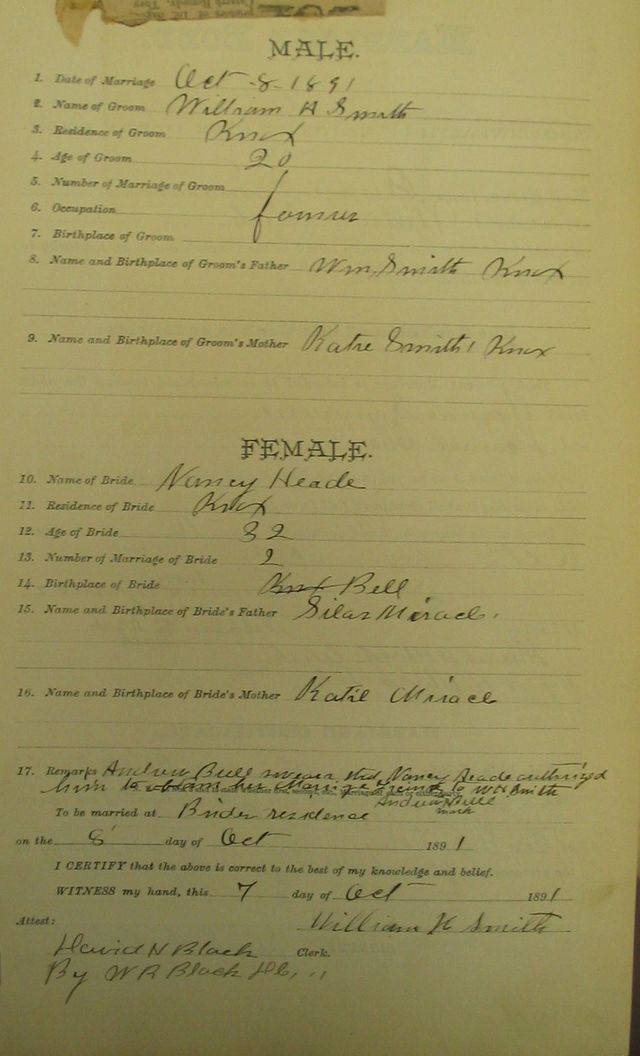 MALE.
1. Date of Marriage Oct 8 1891
2. Name of Groom William H Smith
3. Residence of Groom Knox
4. Age of Groom 20
5. Number of Marriage of Groom 1
6. Occupation farmer
7. Birthplace of Groom
8. Name and Birthplace of Groom's Father Wm Smith Knox
9. Name and Birthplace of Groom's Mother Katie Smith Knox
FEMALE.
10. Name of Bride Nancy Heade
11. Residence of Bride Knox
12. Age of Bride 32
13. Number of Marriage of Bride 2
14. Birthplace of Bride Knox Bell
15. Name and Birthplace of Bride's Father Silas Miracl
16. Name and Birthplace of Bride's Mother Katie Miracl
17. Remarks Andrew Bull swears that Nancy Heade authorized
him to obtain her Marriage license to WH Smith
Andrew
mark
To be married at Brides residence
on the 8 day of Oct 1891
I CERTIFY that the above is correct to the best of my knowledge and belief.
WITNESS my hand, this 7 day of Oct 1891
William H Smith
Attest:
David N Black Clerk.
By W R Black